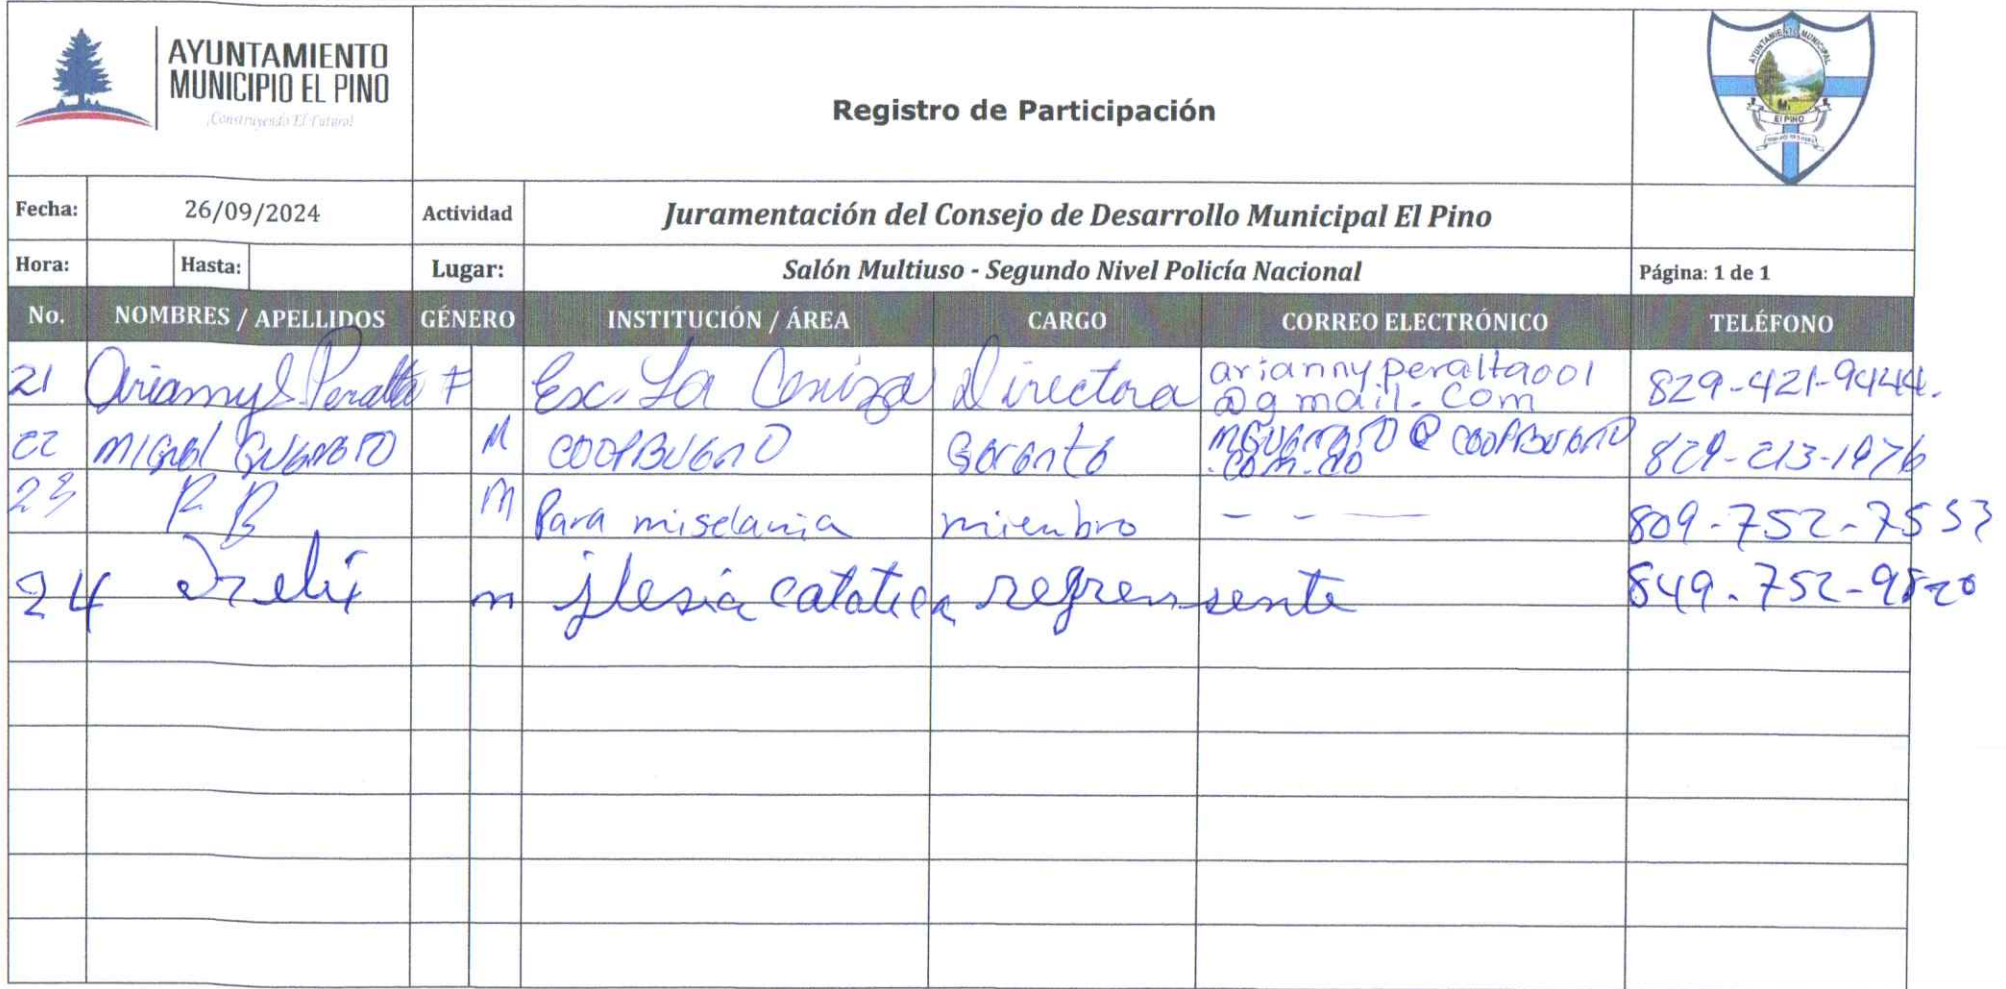 AYUNTAMIENTO
MUNICIPIO EL PINO
¡Construyendo El Futuro!
Registro de Participación
AYUNTAMIENTO MUNICIPAL
El PINO
Fecha: 26/09/2024 Actividad Juramentación del Consejo de Desarrollo Municipal El Pino
Hora: Hasta: Lugar: Salón Multiuso - Segundo Nivel Policía Nacional Página: 1 de 1
No. NOMBRES / APELLIDOS GÉNERO INSTITUCIÓN / ÁREA CARGO CORREO ELECTRÓNICO TELÉFONO
21 Arianny Peralta F Esc. La Ceniza Directora ariannyperalta001
@gmail.com 829-421-9444.
22 Miguel M COOPBUENO Gerente
.com.do 829-213-1976
23 R B M Para miselania miembro - - — 809-752-7553
24 m iglesia catolica 849-752-9820